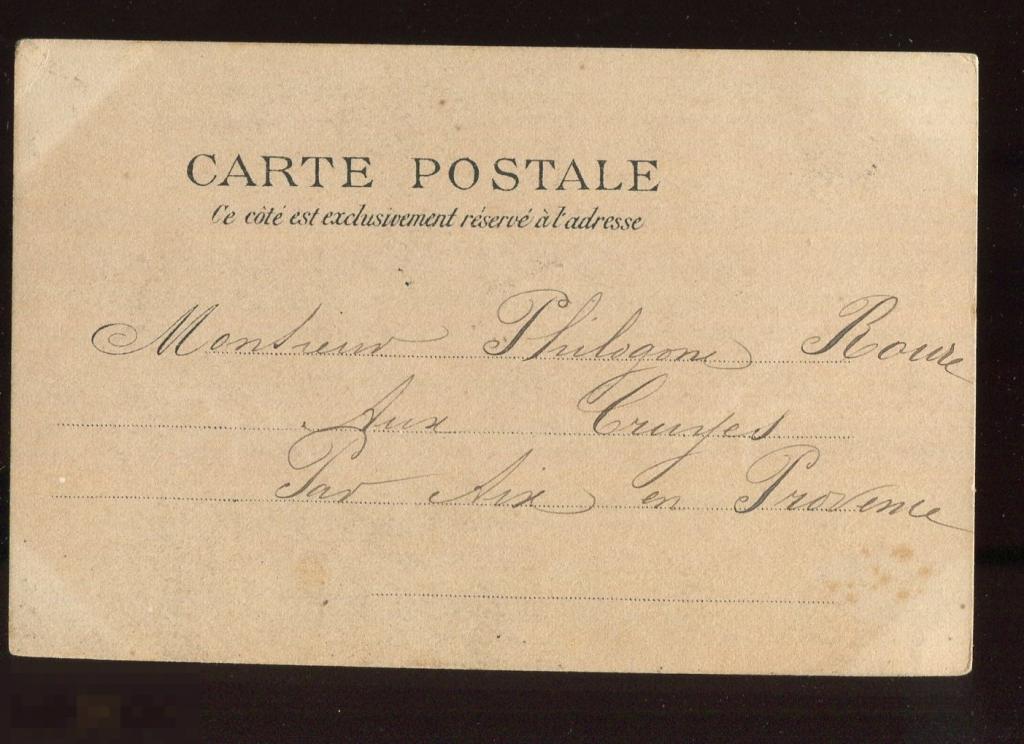 CARTE POSTALE
Ce côté est exclusivement réservé à l'adresse
Monsieur Philogone Roure
Aux Cruyes
Par Aix en Provence